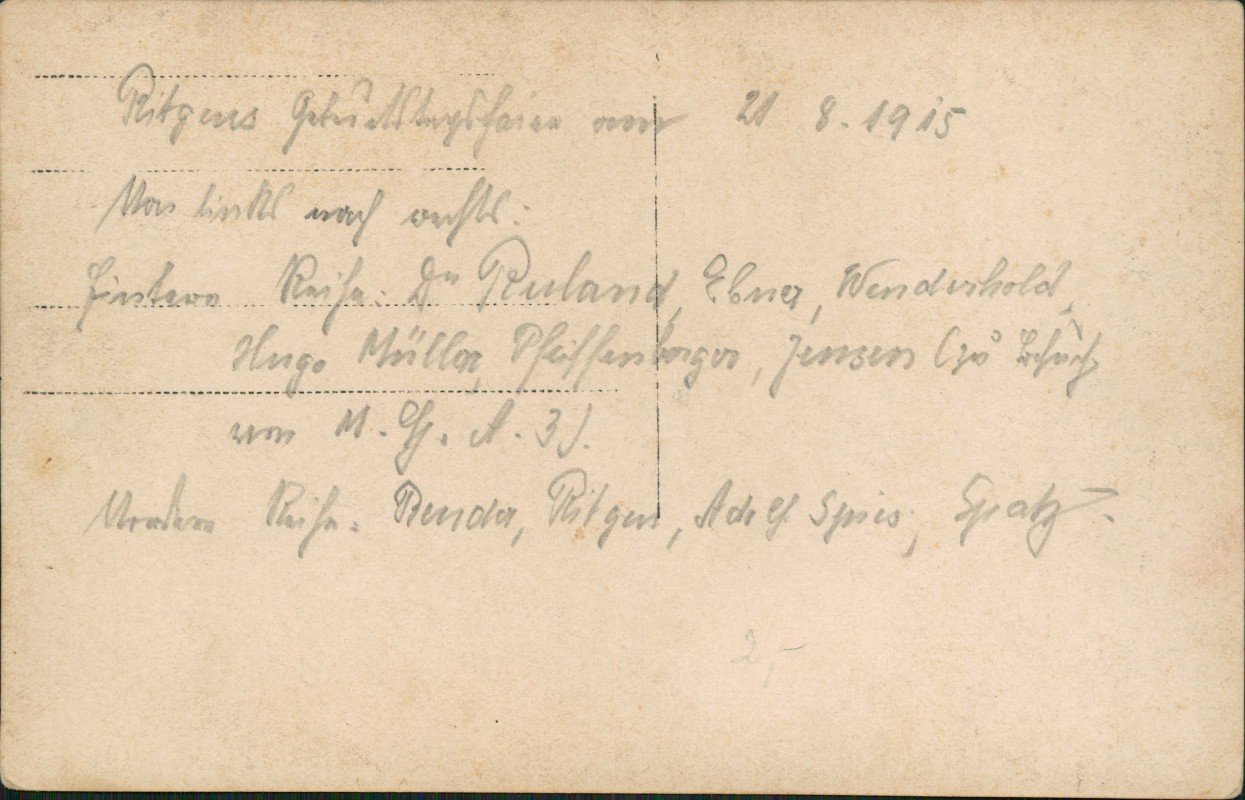 Ritgens Geburtstagsfeier am 21 8. 1915
Von links nach rechts:
hintere Reihe: Dr Ruland, Ebner, Wenderhold,
Hugo Müller, Pfeiffenberger, Jensen (zu Besuch
von M. G. A. 3).
Vordere Reihe: Render, Ritgen, Adolf Spies, Spatz.
2,-